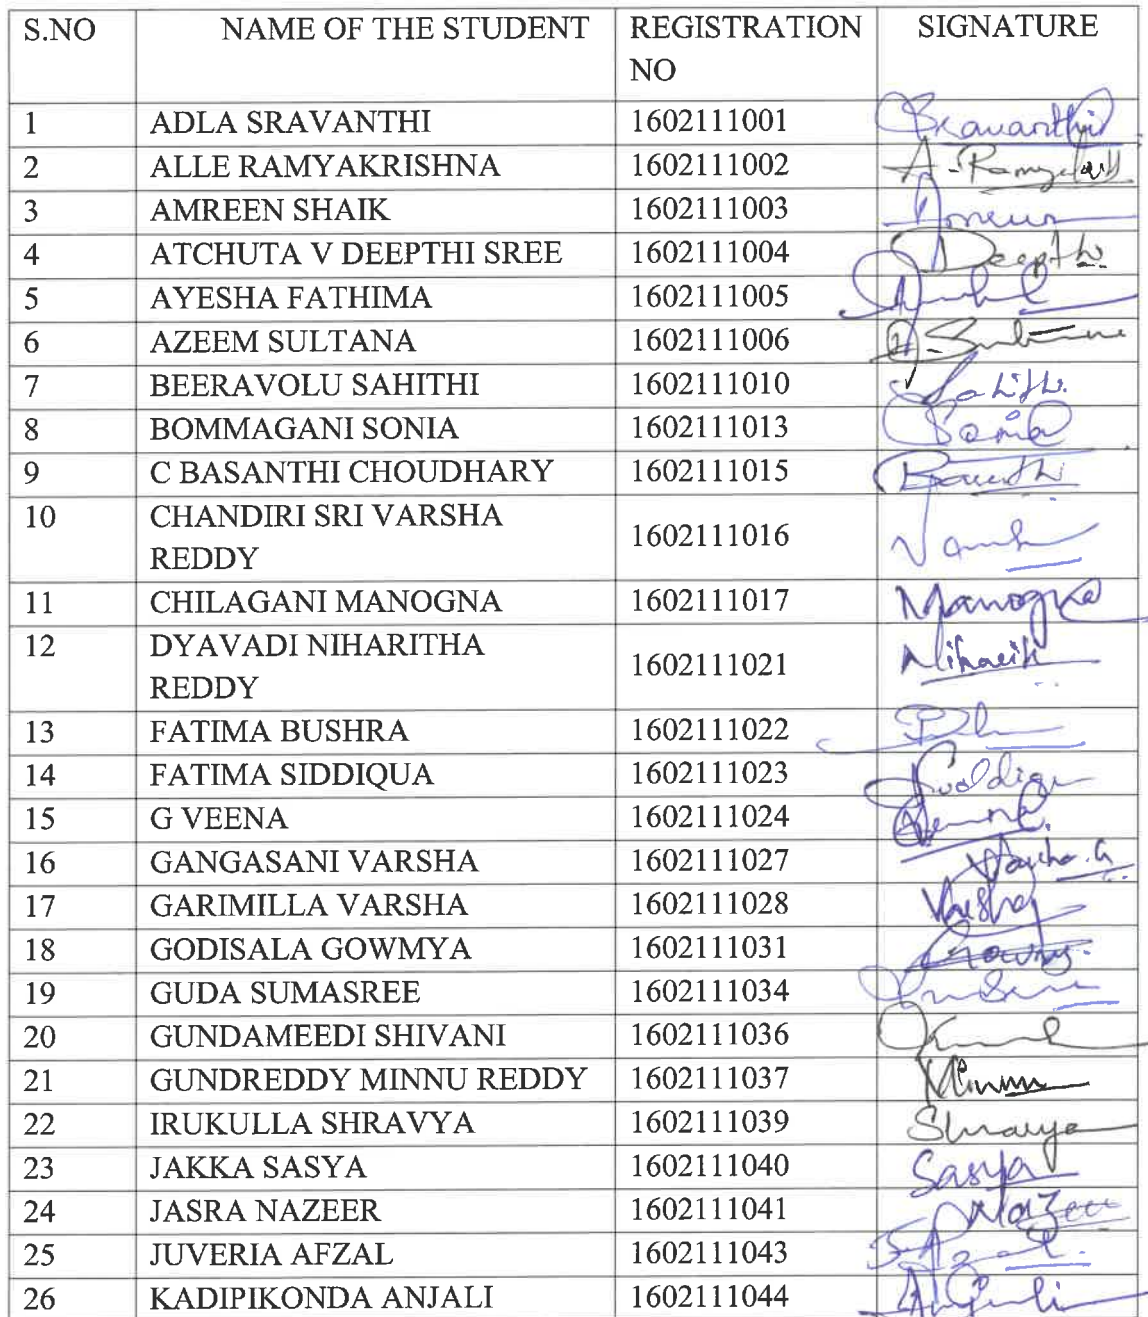 S.NO NAME OF THE STUDENT REGISTRATION SIGNATURE
NO
1 ADLA SRAVANTHI 1602111001 Sravanthi
2 ALLE RAMYAKRISHNA 1602111002
3 AMREEN SHAIK 1602111003
4 ATCHUTA V DEEPTHI SREE 1602111004 Deepthi
5 AYESHA FATHIMA 1602111005
6 AZEEM SULTANA 1602111006
7 BEERAVOLU SAHITHI 1602111010 Sahithi
8 BOMMAGANI SONIA 1602111013 Sonia
9 C BASANTHI CHOUDHARY 1602111015
10 CHANDIRI SRI VARSHA
REDDY 1602111016
11 CHILAGANI MANOGNA 1602111017 Manogna
12 DYAVADI NIHARITHA
REDDY 1602111021
13 FATIMA BUSHRA 1602111022
14 FATIMA SIDDIQUA 1602111023
15 G VEENA 1602111024
16 GANGASANI VARSHA 1602111027 Varsha.G
17 GARIMILLA VARSHA 1602111028 Varsha
18 GODISALA GOWMYA 1602111031
19 GUDA SUMASREE 1602111034
20 GUNDAMEEDI SHIVANI 1602111036
21 GUNDREDDY MINNU REDDY 1602111037 Minnu
22 IRUKULLA SHRAVYA 1602111039 Shravya
23 JAKKA SASYA 1602111040 Sasya
24 JASRA NAZEER 1602111041 Nazeer
25 JUVERIA AFZAL 1602111043
26 KADIPIKONDA ANJALI 1602111044 Anjali